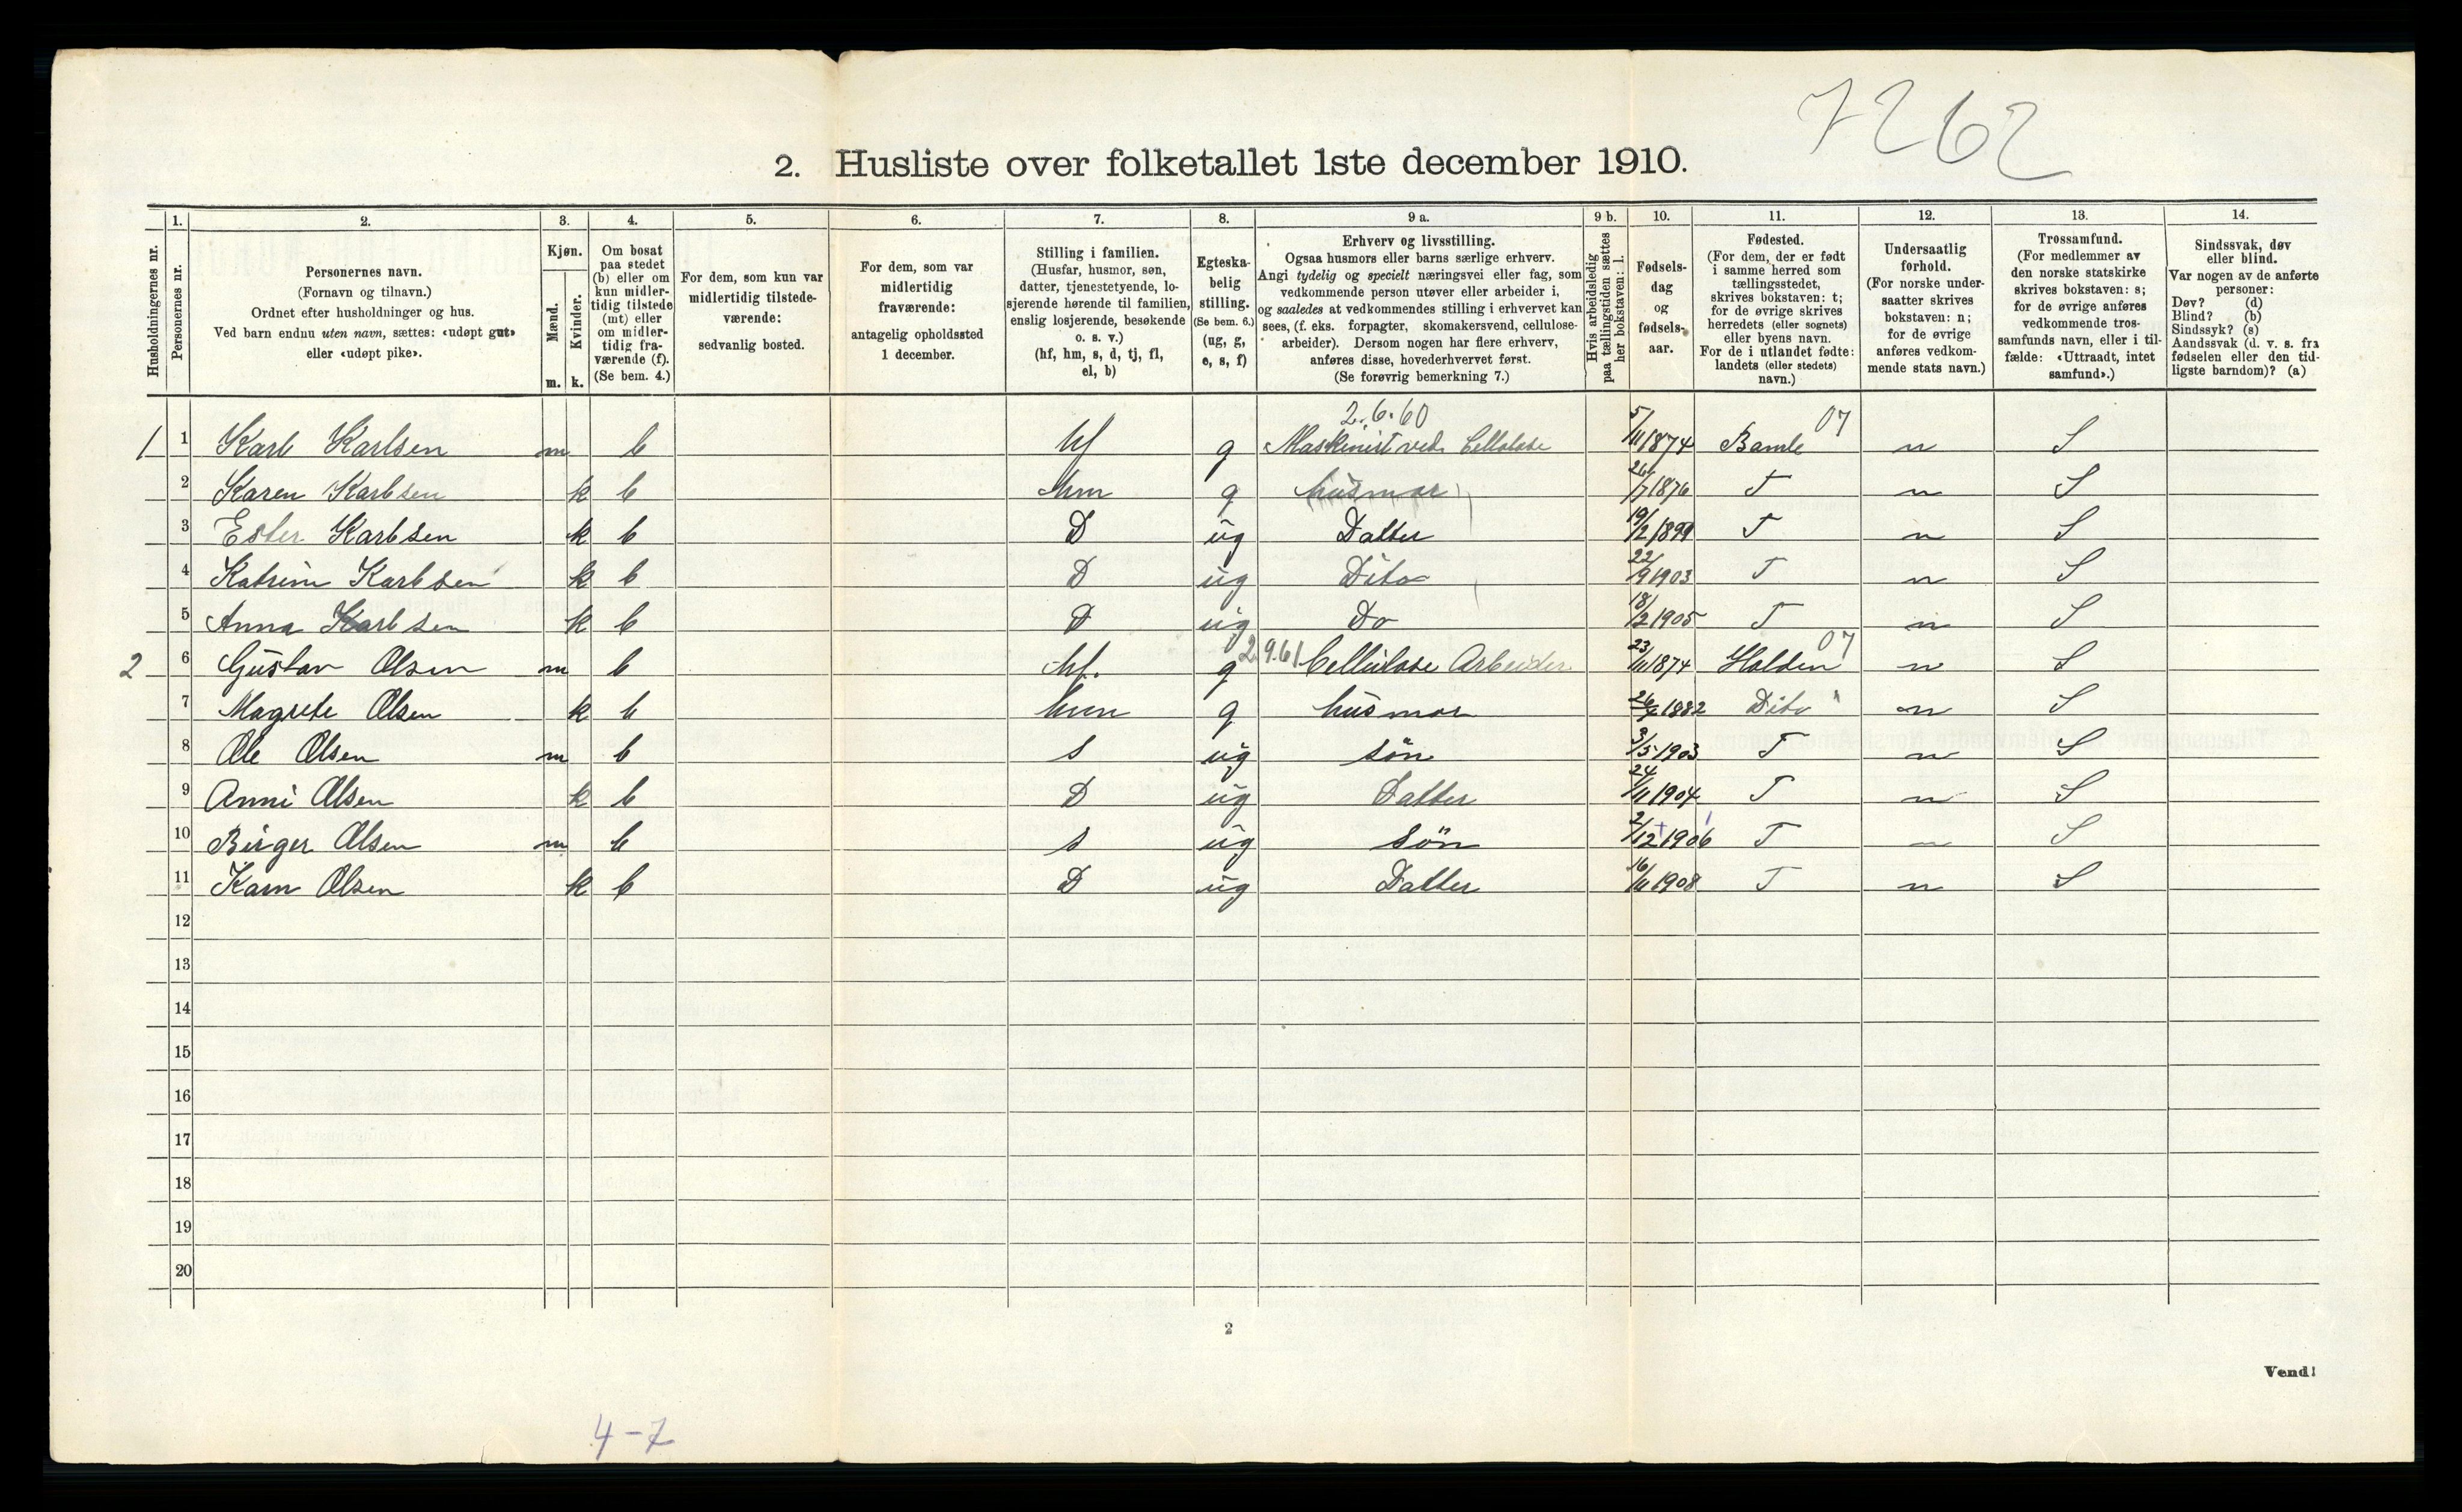 7262
2. Husliste over folketallet 1ste december 1910.
Husholdningernes nr.
1. Personernes nr.
2. Personernes navn.
(Fornavn og tilnavn.)
Ordnet efter husholdninger og hus.
Ved barn endnu uten navn, sættes: «udøpt gut»
eller «udøpt pike».
3. Kjøn.
Mænd. m.
Kvinder. k.
4. Om bosat
paa stedet
(b) eller om
kun midler-
tidig tilstede
(mt) eller
om midler-
tidig fra-
værende (f).
(Se bem. 4.)
5. For dem, som kun var
midlertidig tilstede-
værende:
sedvanlig bosted.
6. For dem, som var
midlertidig
fraværende:
antagelig opholdssted
1 december.
7. Stilling i familien.
(Husfar, husmor, søn,
datter, tjenestetyende, lo-
sjerende hørende til familien,
enslig losjerende, besøkende
o. s. v.)
(hf, hm, s, d, tj, fl,
el, b)
8. Egteska-
belig
stilling.
(Se bem. 6.)
(ug, g,
e, s, f)
9 a. Erhverv og livsstilling.
Ogsaa husmors eller barns særlige erhverv.
Angi tydelig og specielt næringsvei eller fag, som
vedkommende person utøver eller arbeider i,
og saaledes at vedkommendes stilling i erhvervet kan
sees, (f. eks. forpagter, skomakersvend, cellulose-
arbeider). Dersom nogen har flere erhverv,
anføres disse, hovederhvervet først.
(Se forøvrig bemerkning 7.)
9 b. Hvis arbeidsledig
paa tællingstiden sættes
her bokstaven: l.
10. Fødsels-
dag
og
fødsels-
aar.
11. Fødested.
(For dem, der er født
i samme herred som
tællingsstedet,
skrives bokstaven: t;
for de øvrige skrives
herredets (eller sognets)
eller byens navn.
For de i utlandet fødte:
landets (eller stedets)
navn.)
12. Undersaatlig
forhold.
(For norske under-
saatter skrives
bokstaven: n;
for de øvrige
anføres vedkom-
mende stats navn.)
13. Trossamfund.
(For medlemmer av
den norske statskirke
skrives bokstaven: s;
for de øvrige anføres
vedkommende tros-
samfunds navn, eller i til-
fælde: «Uttraadt, intet
samfund».)
14. Sindssvak, døv
eller blind.
Var nogen av de anførte
personer:
Døv? (d)
Blind? (b)
Sindssyk? (s)
Aandssvak (d. v. s. fra
fødselen eller den tid-
ligste barndom)? (a)
2.6.60 07
1 1 Karl Karlsen m b hf g Maskinist ved Cellulose 5/11 1874 Bamle n S
2 Karen Karlsen k b hm g husmor 26/7 1876 T n S
3 Ester Karlsen k b D ug Datter 19/2 1899 T n S
4 Katrine Karlsen k b D ug Dito 22/9 1903 T n S
5 Anna Karlsen k b D ug Do 18/2 1905 T n S
2 6 Gustav Olsen m b hf. g 2.9.61 Cellulose Arbeider 23/11 1874 Holden 07 n S
7 Magrete Olsen k b hm g husmor 26/4 1882 Dito " n S
8 Ole Olsen m b s ug søn 3/5 1903 T n S
9 Anni Olsen k b D ug Datter 24/11 1904 T n S
10 Birger Olsen m b s ug Søn 2/12 1906 T n S
11 Karn Olsen k b D ug Datter 16/11 1908 T n S
12
13
14
15
16
17
18
19
20
2
Vend!
4-7